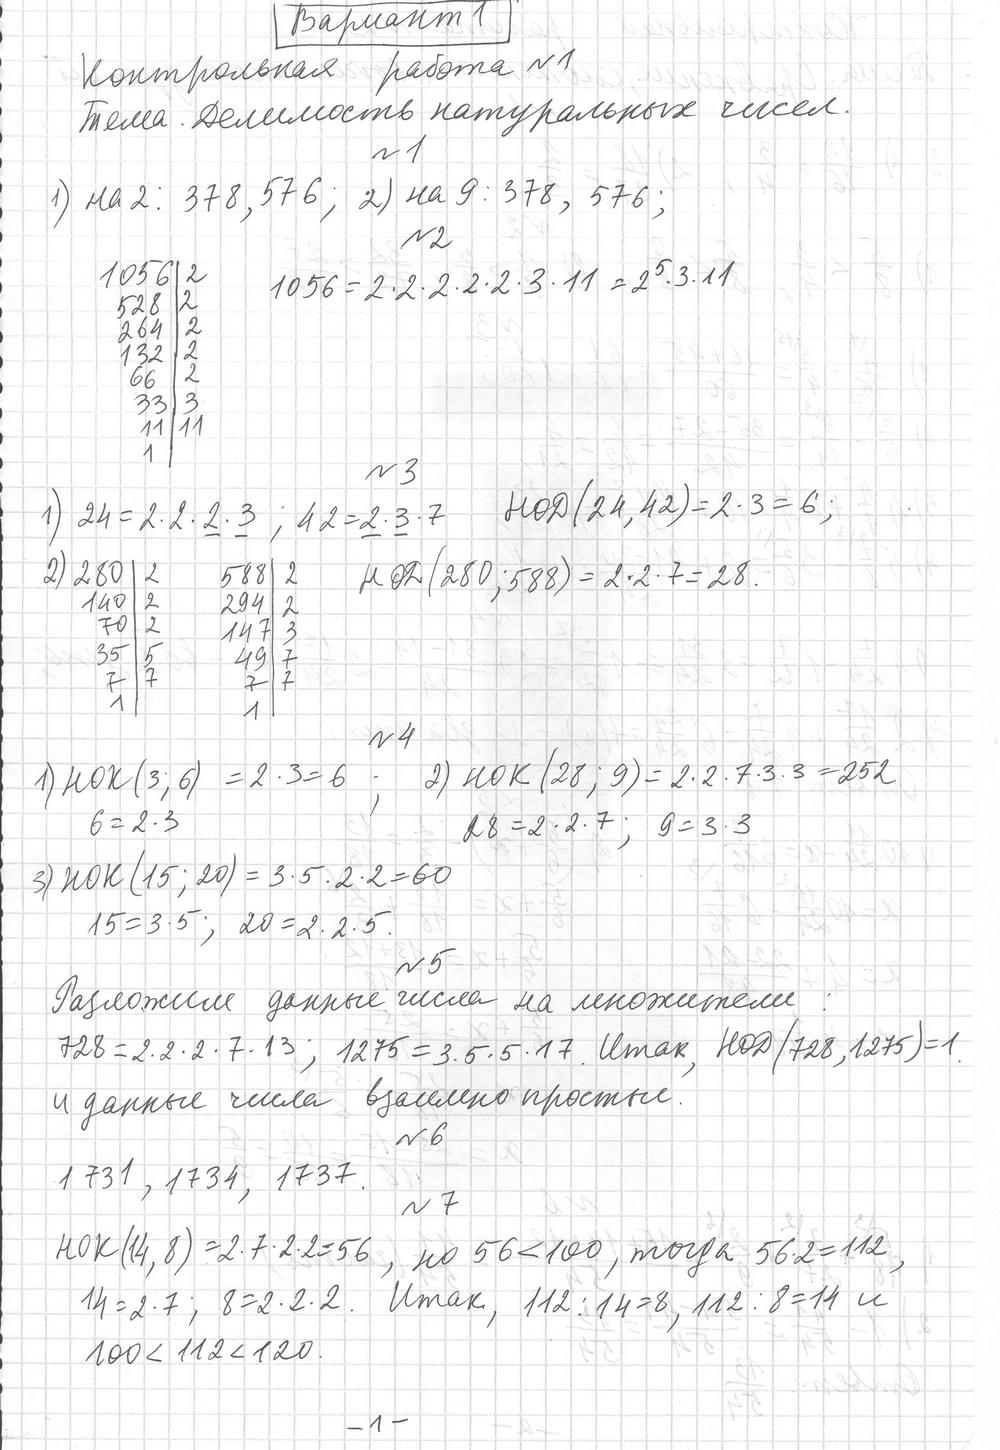 Вариант 1
Контрольная работа №1
Тема. Делимость натуральных чисел.
№1
1) на 2: 378, 576; 2) на 9: 378, 576;
№2
1056 | 2
528 | 2
264 | 2
132 | 2
66 | 2
33 | 3
11 | 11
1
1056 = 2·2·2·2·2·3·11 = 2⁵·3·11
№3
1) 24 = 2·2·2·3 ; 42 = 2·3·7 НОД(24,42) = 2·3 = 6;
2) 280 | 2 588 | 2 НОД(280;588) = 2·2·7 = 28.
140 | 2 294 | 2
70 | 2 147 | 3
35 | 5 49 | 7
7 | 7 7 | 7
1 1
№4
1) НОК(3;6) = 2·3 = 6 ; 2) НОК(28;9) = 2·2·7·3·3 = 252
6 = 2·3 28 = 2·2·7; 9 = 3·3
3) НОК(15;20) = 3·5·2·2 = 60
15 = 3·5; 20 = 2·2·5.
№5
Разложим данные числа на множители:
728 = 2·2·2·7·13; 1275 = 3·5·5·17. Итак, НОД(728,1275) = 1.
и данные числа взаимно простые.
№6
1731, 1734, 1737.
№7
НОК(14,8) = 2·7·2·2 = 56, но 56 < 100, тогда 56·2 = 112,
14 = 2·7; 8 = 2·2·2. Итак, 112:14 = 8, 112:8 = 14 и
100 < 112 < 120.
-1-